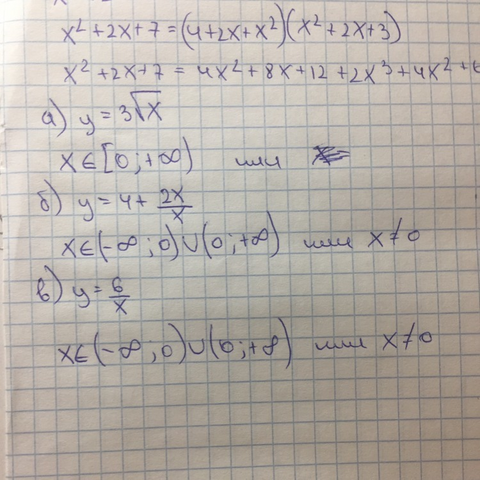 x² + 2x + 7 = (4 + 2x + x²)(x² + 2x + 3)
x² + 2x + 7 = 4x² + 8x + 12 + 2x³ + 4x² + 6
а) y = 3√x
x ∈ [0; +∞) или
б) y = 4 + 2x/x
x ∈ (-∞; 0) ∪ (0; +∞) или x ≠ 0
в) y = 6/x
x ∈ (-∞; 0) ∪ (0; +∞) или x ≠ 0